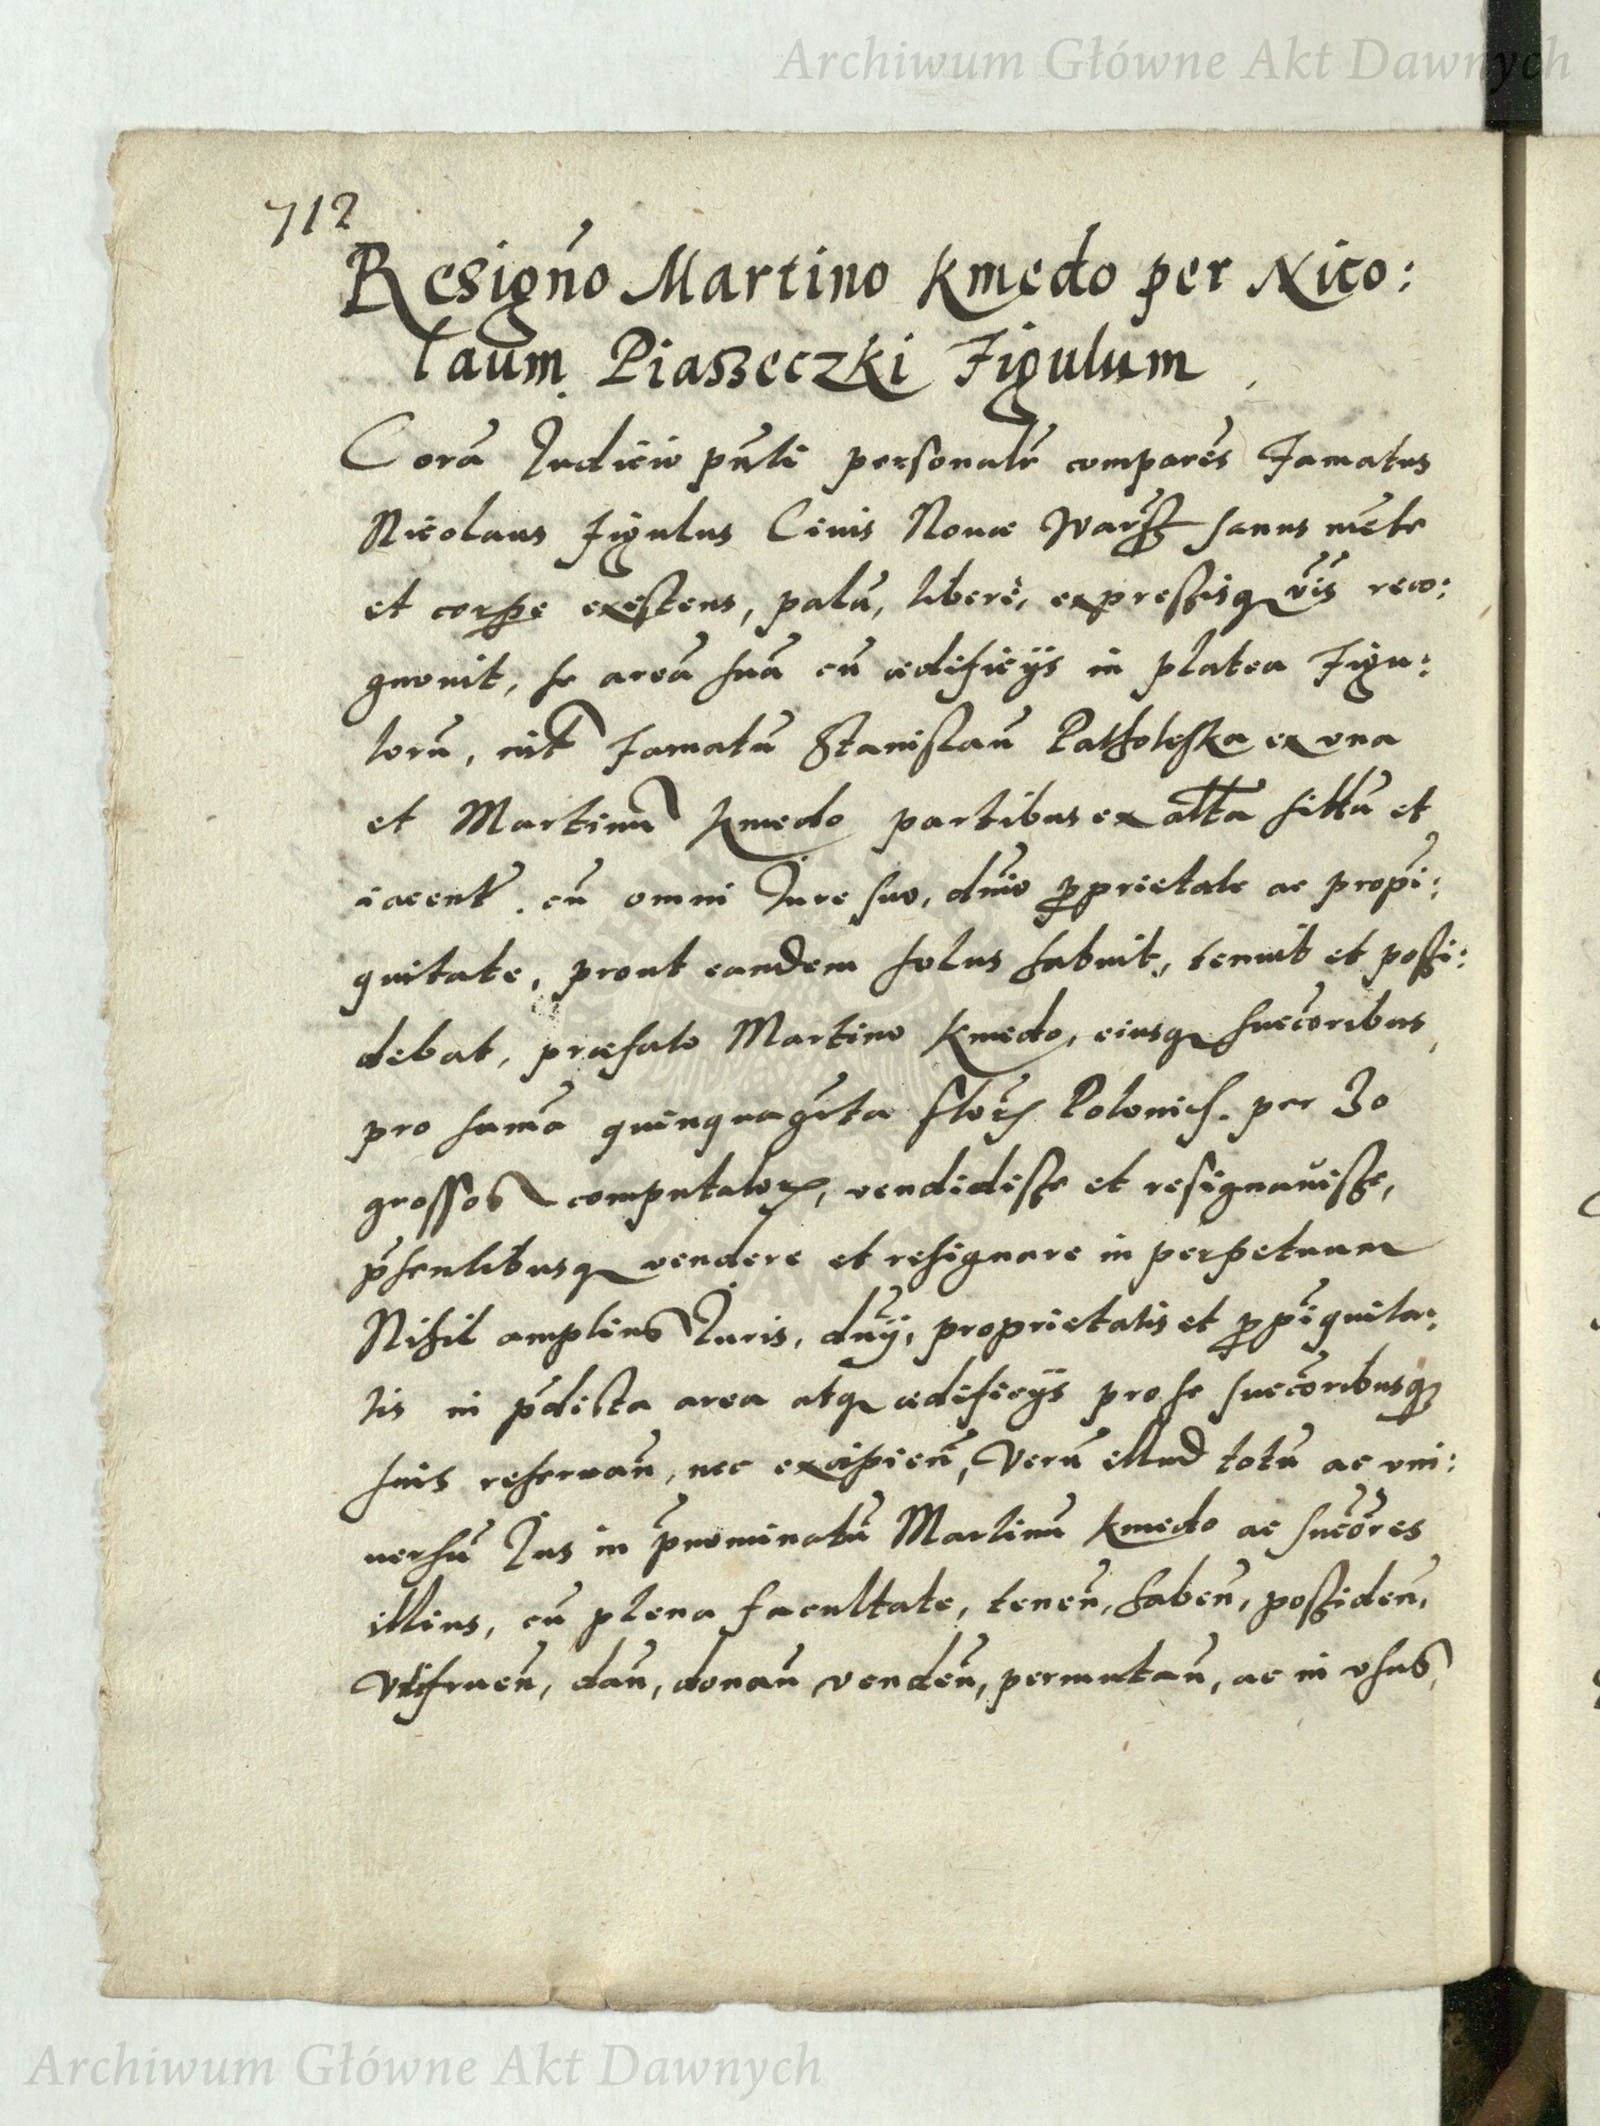 Archiwum Główne Akt Dawnych
712
Resigno͂ Martino Kmedo per Nico:
laum Piaszeczki Figulum
Corā Judicio pn͂ti personalr͂ comparēs Famatus
Nicolaus Figulus Ciuis Nouæ Warß sanus mēte
et corpe existens, palā, liberè, expressisq v͂is reco:
gnouit, se areā suā cū ædificijs in platea Figu:
lorū, int͂ Famatū Stanislaū Patholeska ex vna
et Martinū Kmedo partibus ex alt͂a sittā et
iacent͂. cū omni Jure suo, dn͂io proprietate ac propī:
quitate, prout eandem solus habuit, tenuit et possi:
debat, præfato Martino Kmedo, eiusq succ͂oribus,
pro sum͂a quinquagīta flor͂ Polonich. per 30
grossos computator, vendidisse et resignauisse,
p͂sentibusq vendere et resignare in perpetuum
Nihil amplius Juris, dn͂ij, proprietatis et propīquita:
tis in p͂dicta area atq ædificijs pro se succ͂oribusq
suis reseruan͂, nec excipien͂, Verū illud totū ac vni:
uersū Jus in p͂nominatū Martinū Kmedo ac succ͂ores
illius, cū plena facultate, tenen͂, haben͂, possiden͂,
Vtifruen͂, dan͂, donan͂ venden͂, permutan͂, ac in vsus
Archiwum Główne Akt Dawnych